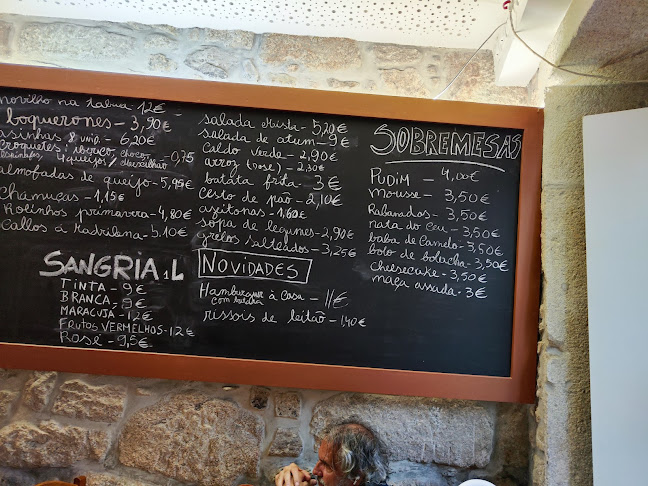 novilho na tábua 12€
boquerones - 3,90€
asinhas 8 uni. - 6,20€
croquetes: ibérico, choco,
4 queijos / 0,75
almofadas de queijo - 5,95€
chamuças - 1,15€
Rolinhos primavera - 4,80€
callos á Madrilena - 5.10€
SANGRIA 1L
TINTA - 9€
BRANCA - 9€
MARACUJÁ - 12€
FRUTOS VERMELHOS - 12€
Rosé - 9,5€
salada Mista - 5,20€
salada de atum - 9€
Caldo Verde - 2,90€
arroz (dose) - 2.30€
batata frita - 3€
cesto de pão - 2,10€
azitonas - 1,60€
sopa de legumes - 2,90€
grelos salteados - 3,25€
NOVIDADES
Hamburguer à Casa - 11€
com batata
rissóis de leitão - 1,40€
SOBREMESAS
PUDIM - 4,00€
Mousse - 3,50€
Rabanados - 3,50€
nata do céu - 3,50€
baba de Camelo - 3,50€
bolo de bolacha - 3,50€
cheesecake - 3,50€
maça assada - 3€